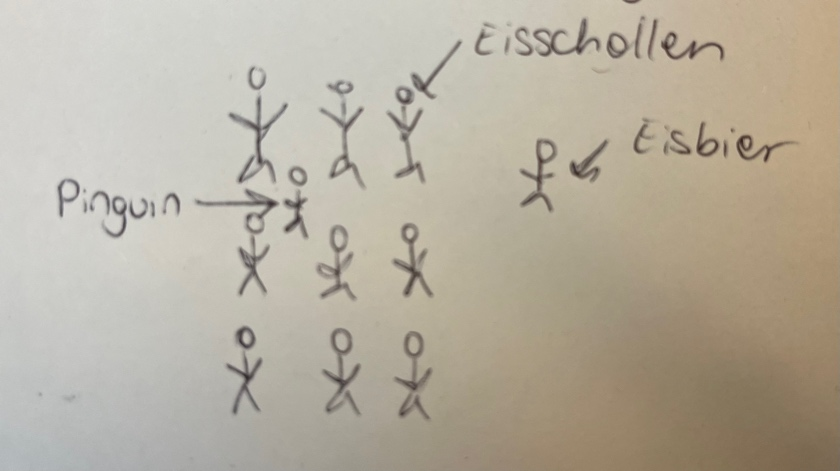 Eisschollen
Eisbier
Pinguin